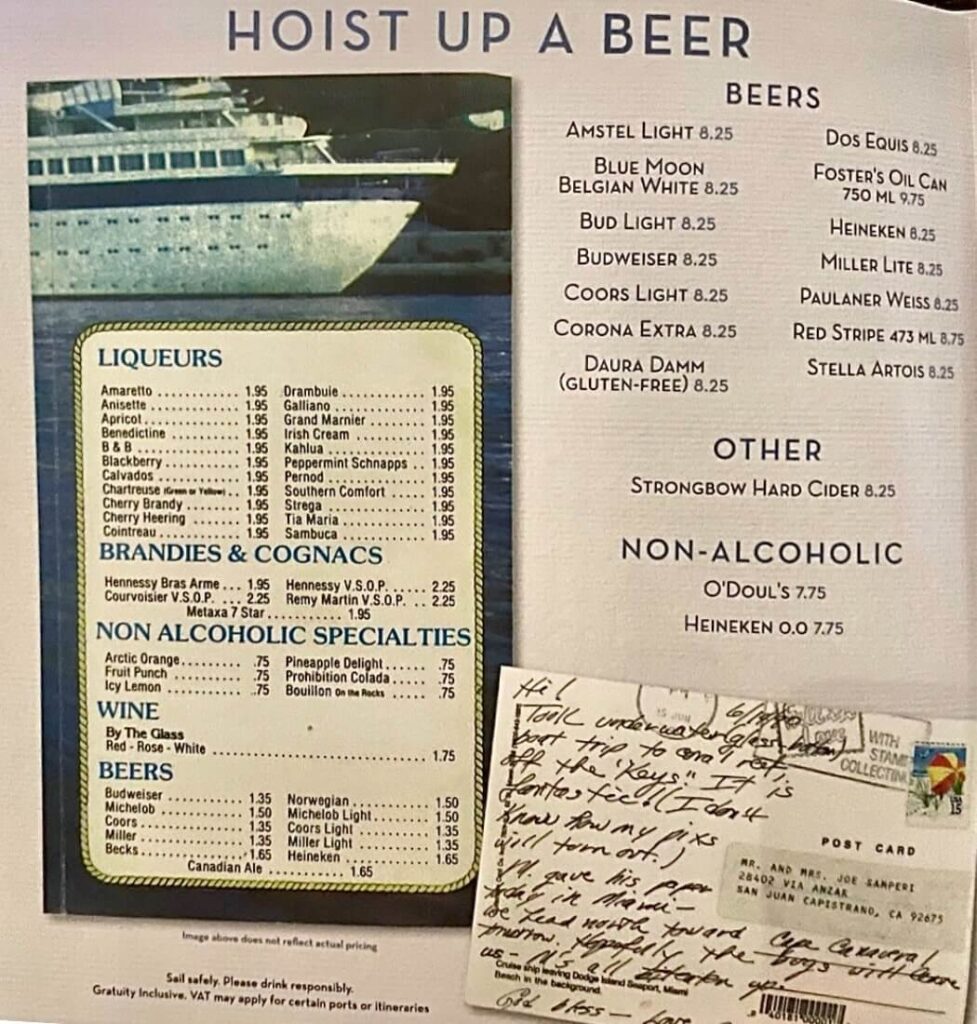 HOIST UP A BEER
BEERS
AMSTEL LIGHT 8.25
BLUE MOON
BELGIAN WHITE 8.25
BUD LIGHT 8.25
BUDWEISER 8.25
COORS LIGHT 8.25
CORONA EXTRA 8.25
DAURA DAMM
(GLUTEN-FREE) 8.25
DOS EQUIS 8.25
FOSTER'S OIL CAN
750 ML 9.75
HEINEKEN 8.25
MILLER LITE 8.25
PAULANER WEISS 8.25
RED STRIPE 473 ML 8.75
STELLA ARTOIS 8.25
OTHER
STRONGBOW HARD CIDER 8.25
NON-ALCOHOLIC
O'DOUL'S 7.75
HEINEKEN 0.0 7.75
LIQUEURS
Amaretto ............ 1.95
Anisette ............ 1.95
Apricot ............ 1.95
Benedictine ............ 1.95
B & B ............ 1.95
Blackberry ............ 1.95
Calvados ............ 1.95
Chartreuse (Green or Yellow) .. 1.95
Cherry Brandy ....... 1.95
Cherry Heering ....... 1.95
Cointreau ............ 1.95
Drambuie ............ 1.95
Galliano ............ 1.95
Grand Marnier ......... 1.95
Irish Cream ............ 1.95
Kahlua ............ 1.95
Peppermint Schnapps .. 1.95
Pernod ............ 1.95
Southern Comfort ..... 1.95
Strega ............ 1.95
Tia Maria ............ 1.95
Sambuca ............ 1.95
BRANDIES & COGNACS
Hennessy Bras Arme ... 1.95
Courvoisier V.S.O.P. ... 2.25
Hennessy V.S.O.P. ..... 2.25
Remy Martin V.S.O.P. .. 2.25
Metaxa 7 Star .......... 1.95
NON ALCOHOLIC SPECIALTIES
Arctic Orange ......... .75
Fruit Punch ......... .75
Icy Lemon ......... .75
Pineapple Delight ...... .75
Prohibition Colada ..... .75
Bouillon On the Rocks ..... .75
WINE
By The Glass
Red - Rose - White ............ 1.75
BEERS
Budweiser ............ 1.35
Michelob ............ 1.50
Coors ............ 1.35
Miller ............ 1.35
Becks ............ 1.65
Norwegian ............ 1.50
Michelob Light ......... 1.50
Coors Light ............ 1.35
Miller Light ............ 1.35
Heineken ............ 1.65
Canadian Ale ............ 1.65
Image above does not reflect actual pricing
Sail safely. Please drink responsibly.
Gratuity Inclusive. VAT may apply for certain ports or itineraries
Hi!
Took underwater glass
boat trip to coral
off the "Keys." It is
fantastic! (I don't
know how my pixs
will turn out.)
M. gave his paper
today in Miami -
we head north toward Cape Canaveral
tomorrow. Hopefully the boys will
us - it's all
God bless - Love
WITH
STAMP
COLLECTING
USA
15
POST CARD
MR. AND MRS. JOE SAMPERI
28402 VIA ANZAR
SAN JUAN CAPISTRANO, CA 92675
Cruise ship leaving Dodge Island Seaport, Miami
Beach in the background.